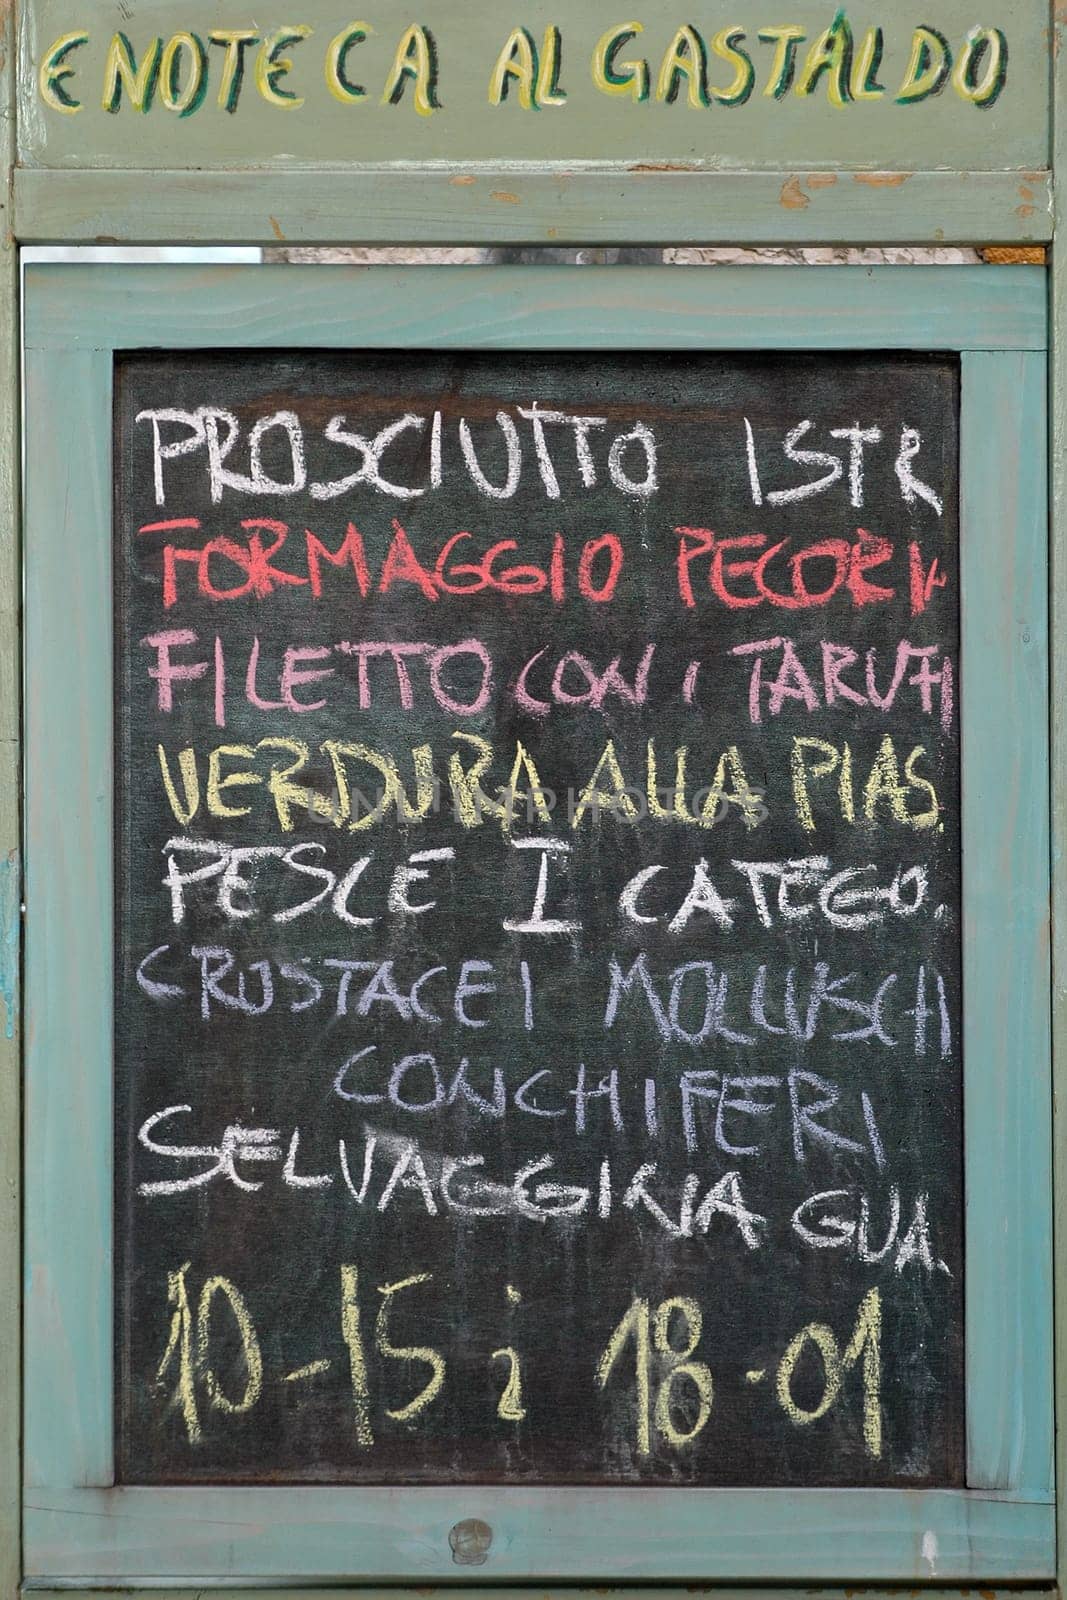 ENOTECA AL GASTALDO
PROSCIUTTO ISTR
FORMAGGIO PECORI
FILETTO CON I TARUFI
VERDURA ALLA PIAS.
PESCE I CATEGO.
CROSTACEI MOLLUSCHI
CONCHIFERI
SELVAGGINA GUA.
10-15 i 18-01
UNLIMPHOTOS